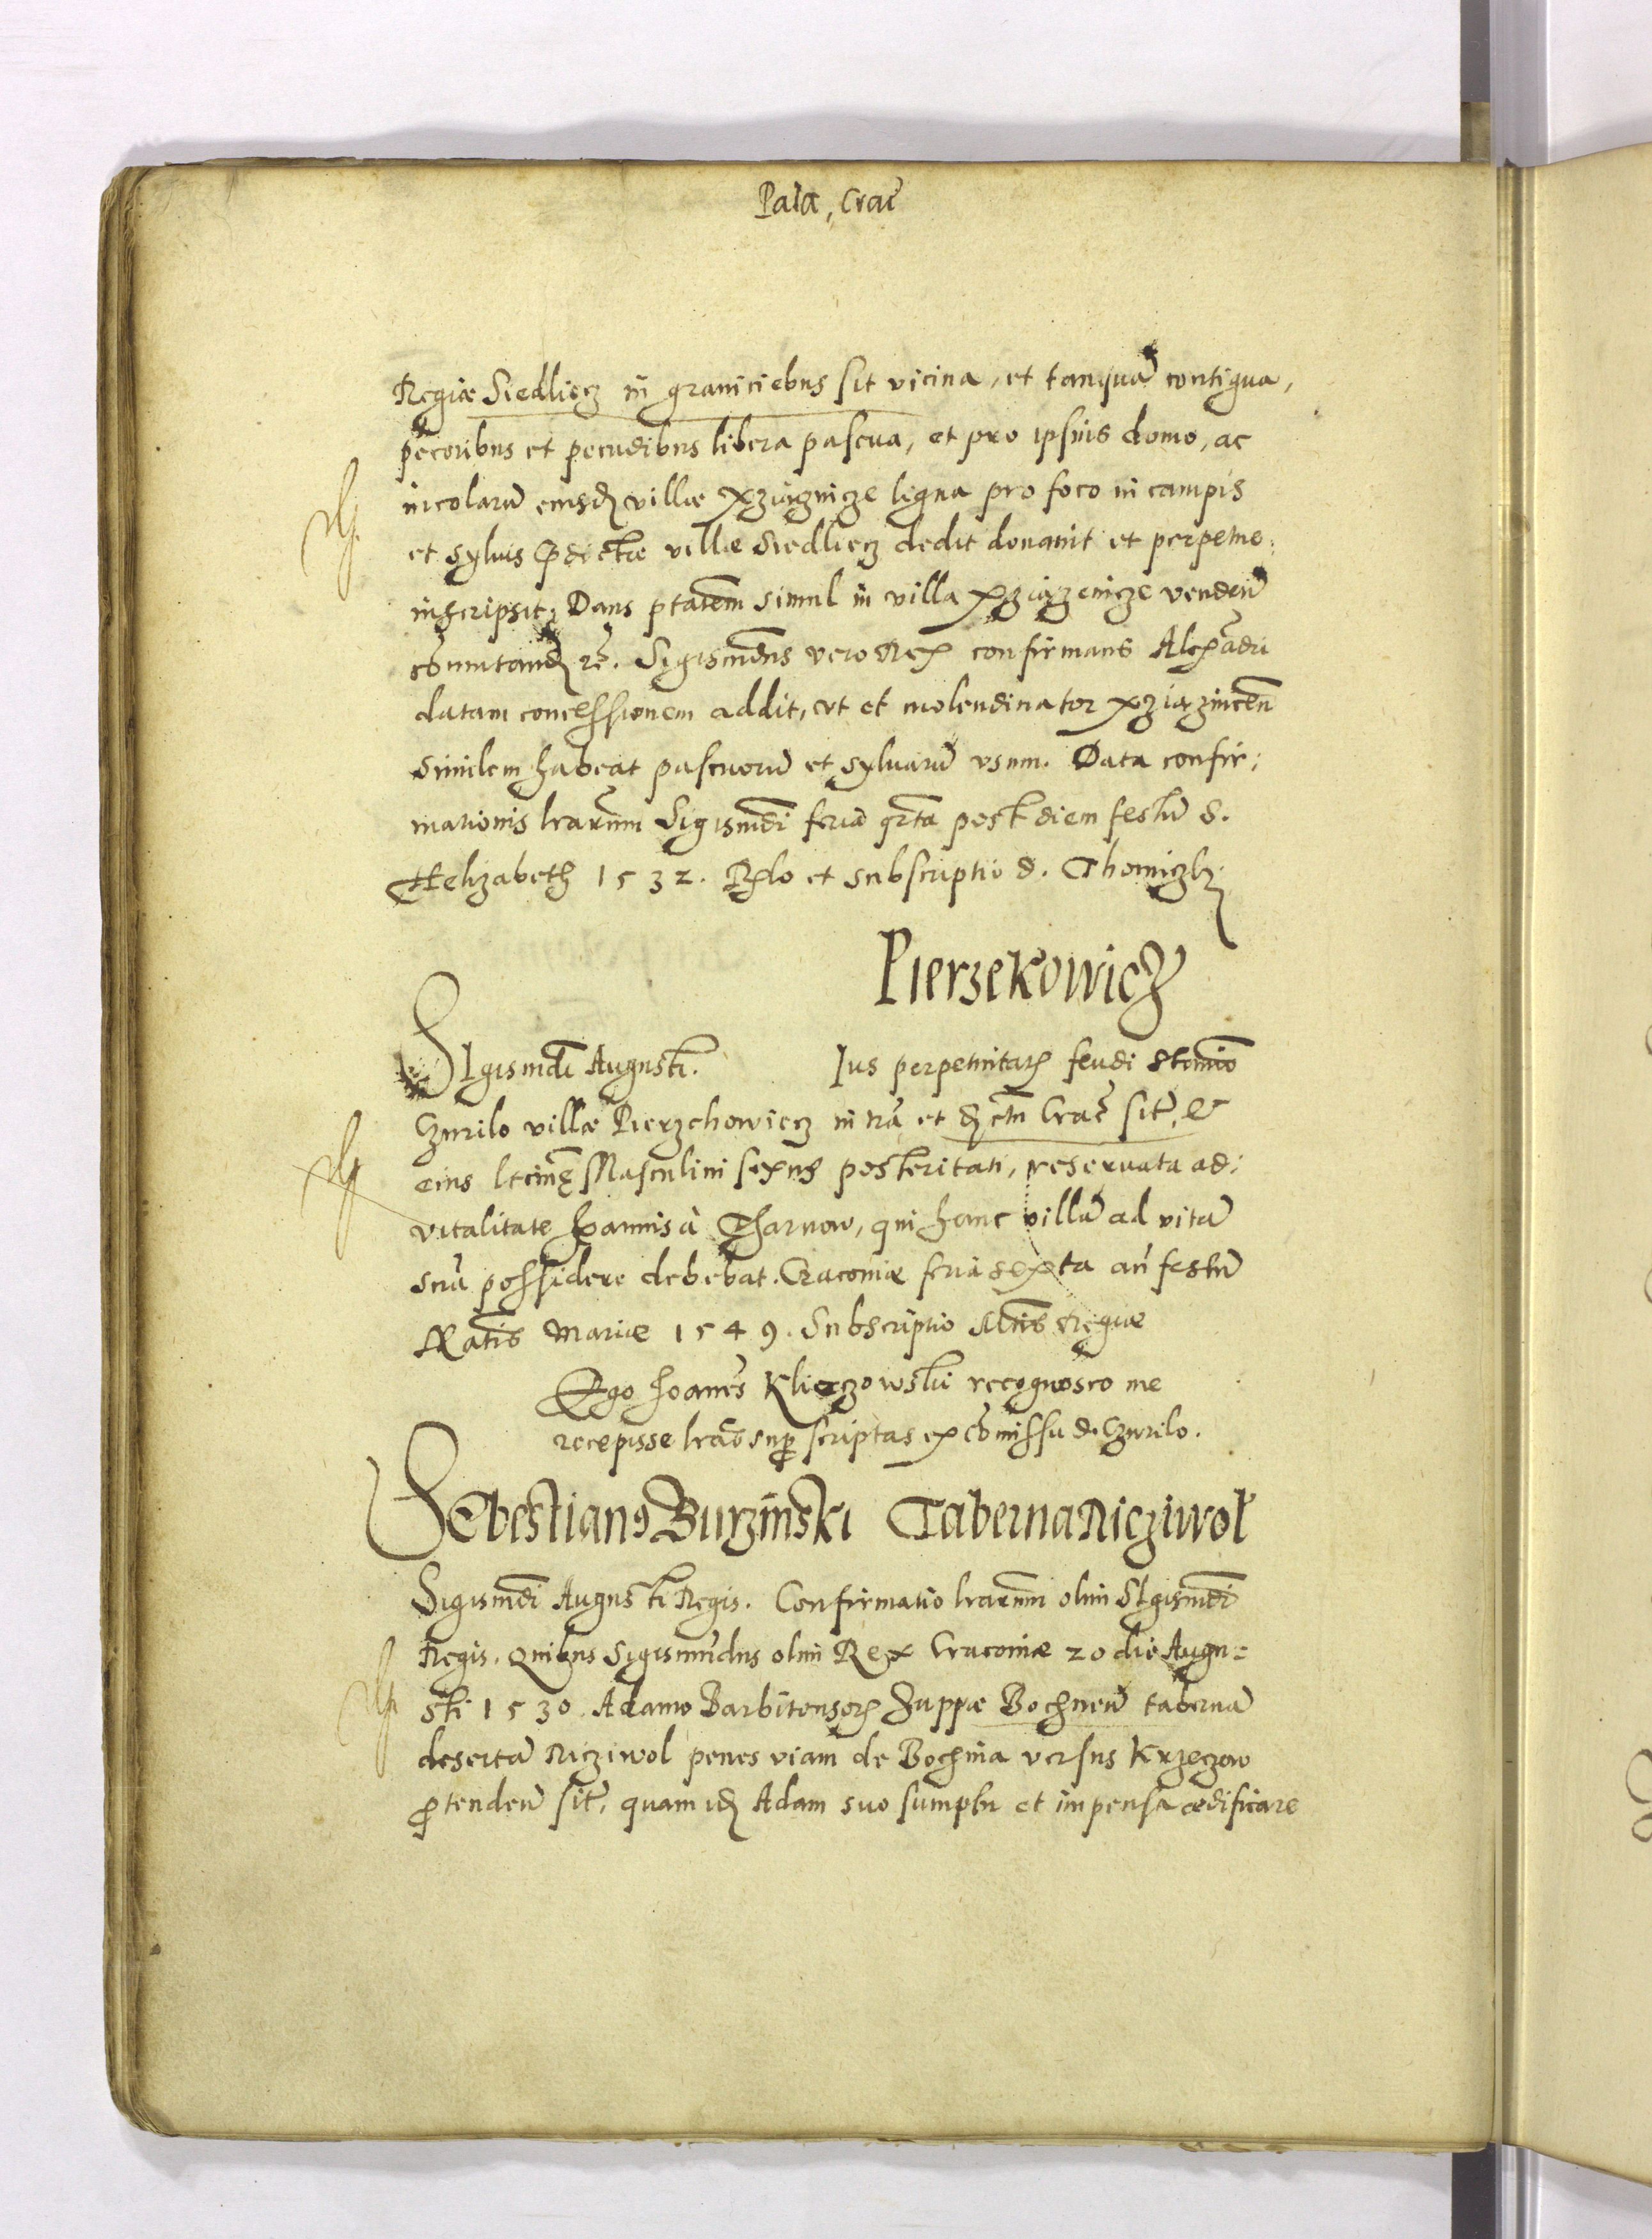 Pala, Crac̃
Regiæ Siedliecz in graniciebus sit vicina, et tanquã contigua,
pecoribus et pecudibus libera pascua, et pro ipsius domo, ac
incolarũ eiusd villæ Xziąznicze ligna pro foco in campis
et syluis p̃dictæ villæ Siedliecz dedit donauit et perpetuo
inscripsit, Dans ptatem̃ simul in villa Xziązenicze vendeñ
cõmutand rẽ. Sigismũdus vero Rex confirmans Alexãdri
datam concessionem addit, vt et molendinator Xziąznicen̄
similem habeat pascuorũ et syluarũ vsum. Data confir:
mationis lrarum̃ Sigismũdi feria qrta post diem festũ S.
Helizabeth 1532. Rlo et subscriptio d. Thomiczki
Pierzekowicz
SIgismũdi Augusti. Ius perpetuitatis feudi
Czurilo villæ Pierzchowiecz in tra et dctu Crac̃ sitæ, et
eius ltimę Masculini sexus posteritati, reseruata ad:
vitalitate Ioannis à Tharnow, qui hanc villã ad vitã
suã possidere debebat. Cracouiæ feria sexta añ festũ
Natis Mariæ 1549. Subscriptio Mtis Regiæ
Ego Ioanes Klieczowski recognosco me
recepisse lras supr scriptas ex cõmissu d. Czurilo.
SEbestianꝰ Burzinski Taberna Nicziwol
Sigismũdi Augusti Regis. Confirmatio lrarum̃ olim SIgismũdi
Regis. Quibus Sigismũdus olim Rex Cracouiæ 20 die Augu=
sti 1530. Adamo Barbitonsori Zuppæ Bochneñ tabernã
desertã Nicziwol penes viam de Bochnia versus Krzeczow
ꝓtendeñ sitã, quam id Adam suo sumptu et impensa ædificare